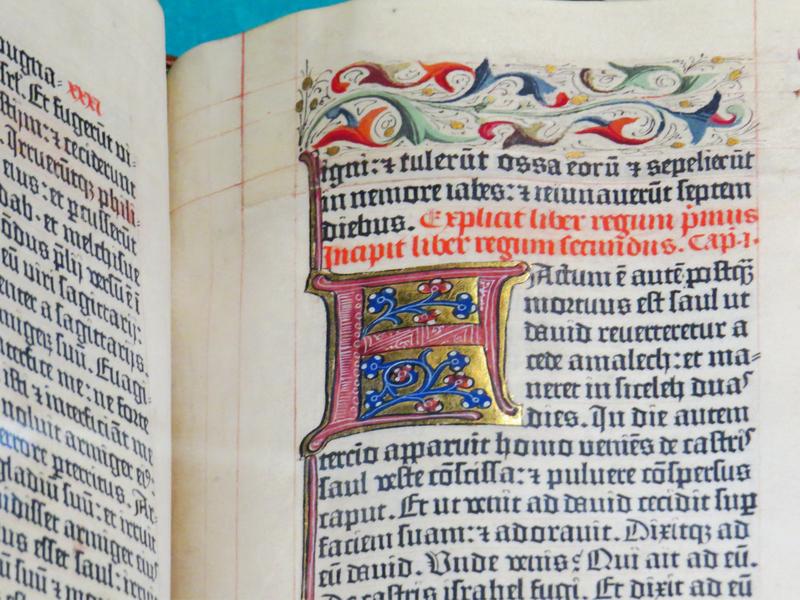 pugna- xxxi
srl̄. Et fugerūt vi-
stijm: ⁊ ceciderunt
Irruerūtqꝫ phili-
eius: et ꝑcusserūt
dab. et melchisue
ōdus p̄lij versū ē ī
eū viri sagittarij:
enter a sagittarijs.
miger suū. Euagi-
nterfice me: ne forte
isti ⁊ interficiāt me
noluit armiger eiꝰ:
errore ꝑterritus. Ar-
gladiū suū: et irruit
uidisset armiger eius
us esset saul: irruit
igni: ⁊ tulerūt ossa eorū ⁊ sepelierūt
in nemore iabes: ⁊ ieiunauerūt septem
diebus. Explicit liber regum p̄mus
Incipit liber regum secundus. Cap. 1.
FActum ē autē postqꝫ
mortuus est saul ut
dauid reuerteretur a
cede amalech: et ma-
neret in siceleh duas
dies. In die autem
tercio apparuit homo veniēs de castris
saul veste cōscissa: ⁊ puluere cōspersus
caput. Et ut venit ad dauid cecidit suꝑ
faciem suam: ⁊ adorauit. Dixitqꝫ ad
eū dauid. Unde venis? Qui ait ad eū.
De castris israhel fugi. Et dixit ad eū